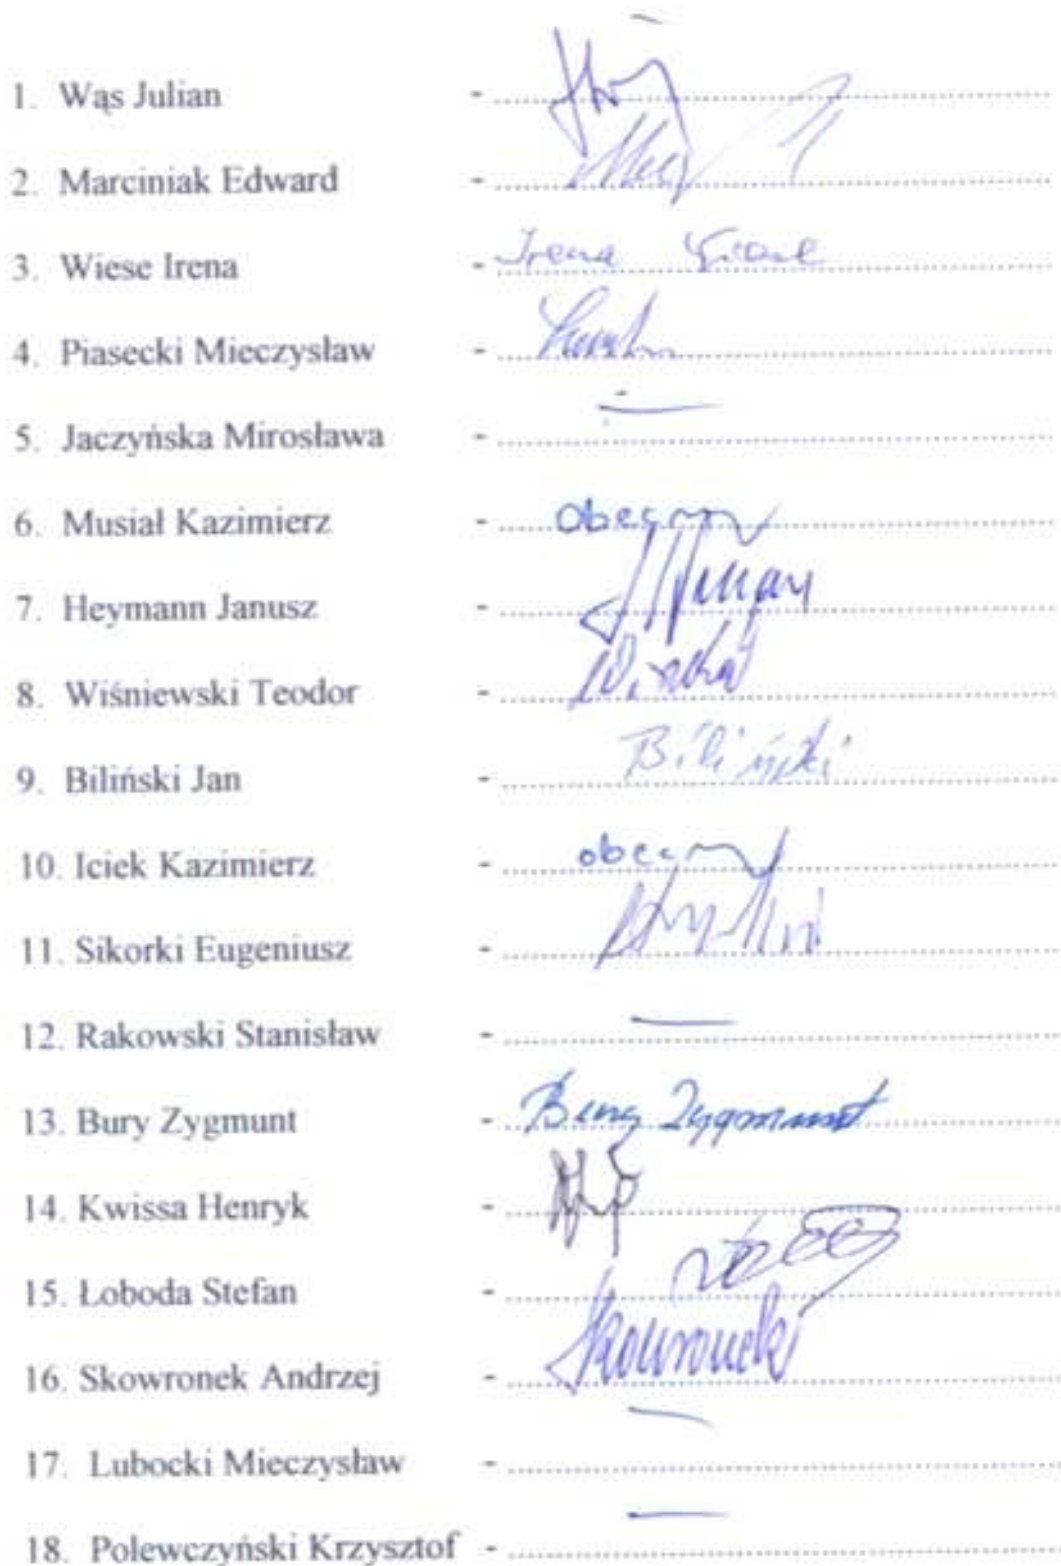 1. Wąs Julian - ........................
2. Marciniak Edward - ........................
3. Wiese Irena - Irena
4. Piasecki Mieczysław - ........................
5. Jaczyńska Mirosława - — ........................
6. Musiał Kazimierz - obecny
7. Heymann Janusz - ........................
8. Wiśniewski Teodor - ........................
9. Biliński Jan - Biliński
10. Iciek Kazimierz - obecny
11. Sikorki Eugeniusz - ........................
12. Rakowski Stanisław - — ........................
13. Bury Zygmunt - Bury Zygmunt
14. Kwissa Henryk - ........................
15. Łoboda Stefan - ........................
16. Skowronek Andrzej - Skowronek
17. Lubocki Mieczysław - — ........................
18. Polewczyński Krzysztof - — ........................